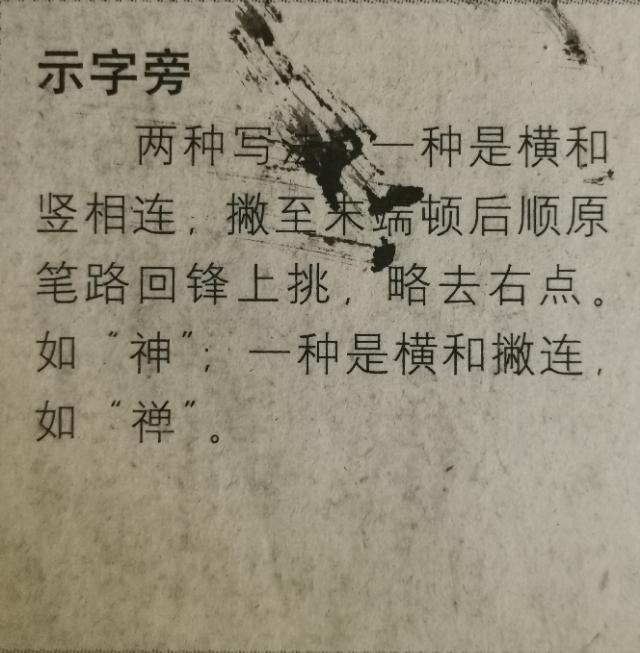 示字旁
两种写法，一种是横和
竖相连，撇至末端顿后顺原
笔路回锋上挑，略去右点。
如“神”；一种是横和撇连，
如“禅”。